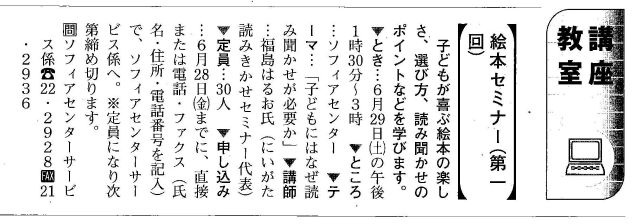 講座
教室
絵本セミナー(第一
回)
子どもが喜ぶ絵本の楽し
さ、選び方、読み聞かせの
ポイントなどを学びます。
▼とき…6月29日㈯の午後
1時30分〜3時　▼ところ
…ソフィアセンター　▼テ
ーマ…「子どもにはなぜ読
み聞かせが必要か」▼講師
…福島はるお氏(にいがた
読みきかせセミナー代表)
▼定員…30人　▼申し込み
…6月28日㈮までに、直接
または電話・ファクス(氏
名・住所・電話番号を記入)
で、ソフィアセンターサー
ビス係へ。※定員になり次
第締め切ります。
問ソフィアセンターサービ
ス係☎22・2928 FAX 21
・2936